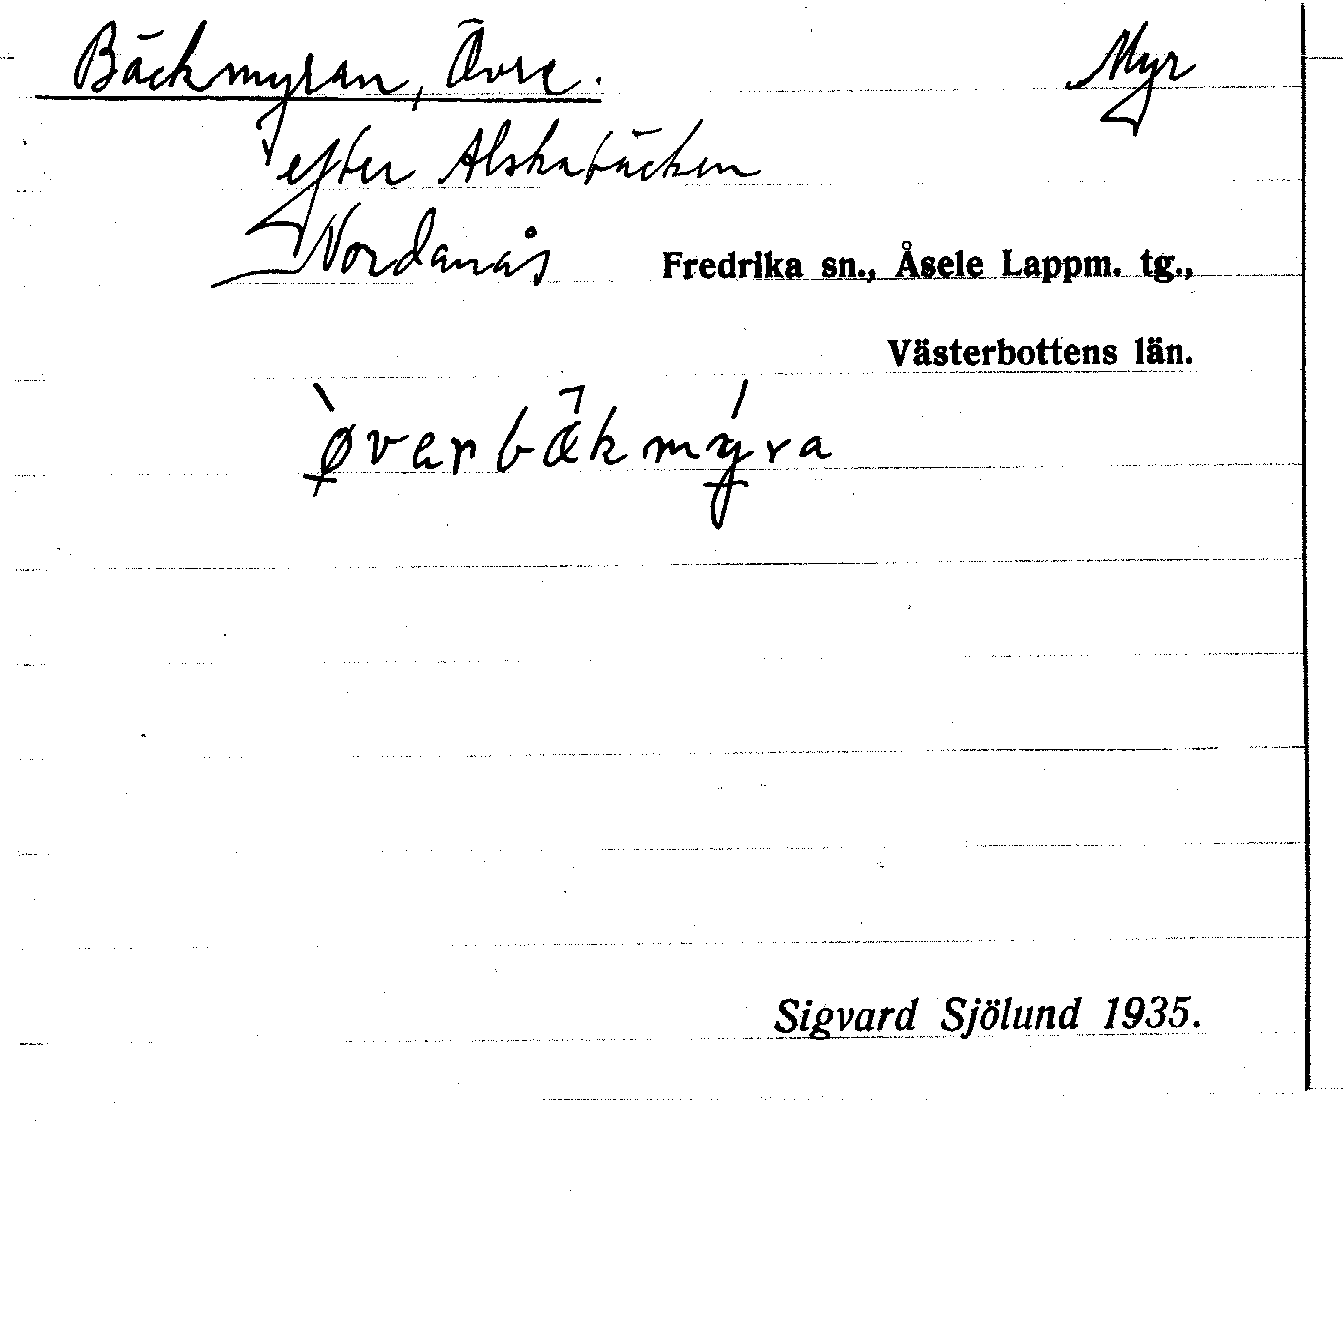 Bäckmyran, Övre. Myr
efter Alskabäcken
Nordanås Fredrika sn., Åsele Lappm. tg.,
Västerbottens län.
øverbäkmyra
Sigvard Sjölund 1935.